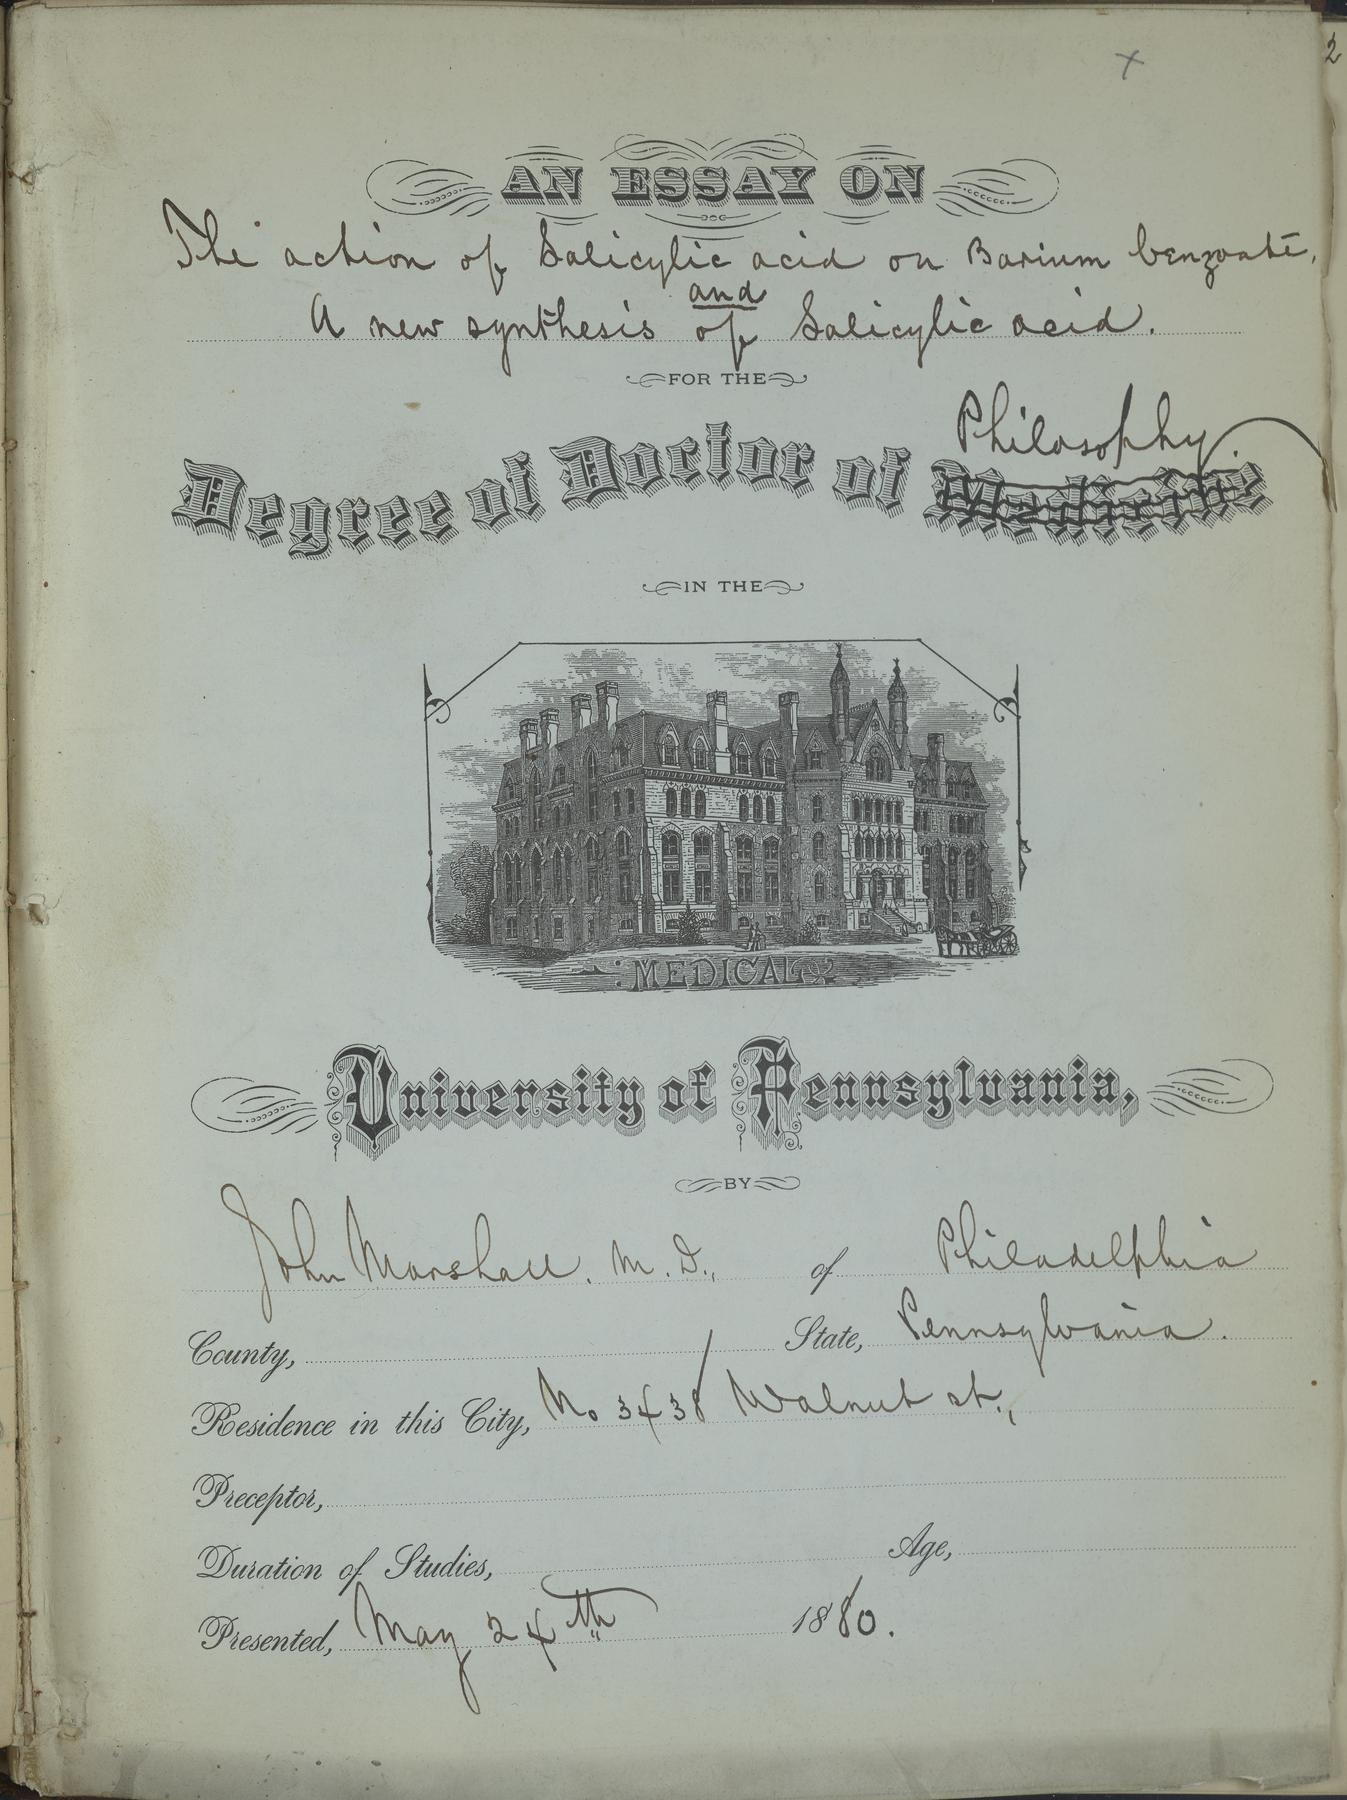 x
2
AN ESSAY ON
The action of Salicylic acid on Barium benzoate,
and
A new synthesis of Salicylic acid.
FOR THE
Philosophy
Degree of Doctor of Medicine
IN THE
MEDICAL
University of Pennsylvania,
BY
John Marshall. M. D., of Philadelphia
County, State, Pennsylvania.
Residence in this City, No 3438 Walnut st.,
Preceptor,
Duration of Studies, Age,
Presented, May 24th 1880.